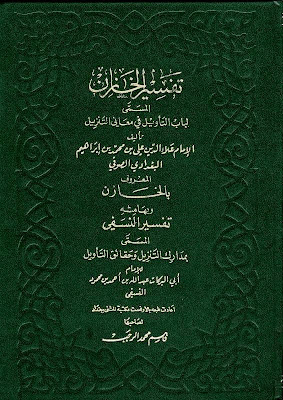 تفسير الخازن
المسمى
لباب التأويل في معاني التنزيل
تأليف
الإمام علاء الدين علي بن محمد بن إبراهيم
البغدادي الصوفي
المعروف
بالخازن
وبهامشه
تفسير النسفي
المسمى
بمدارك التنزيل وحقائق التأويل
للإمام
أبي البركات عبد الله بن أحمد بن محمود
النسفي
أعادت طبعه بالأوفست مكتبة المثنى ببغداد
لصاحبها
قاسم محمد الرجب